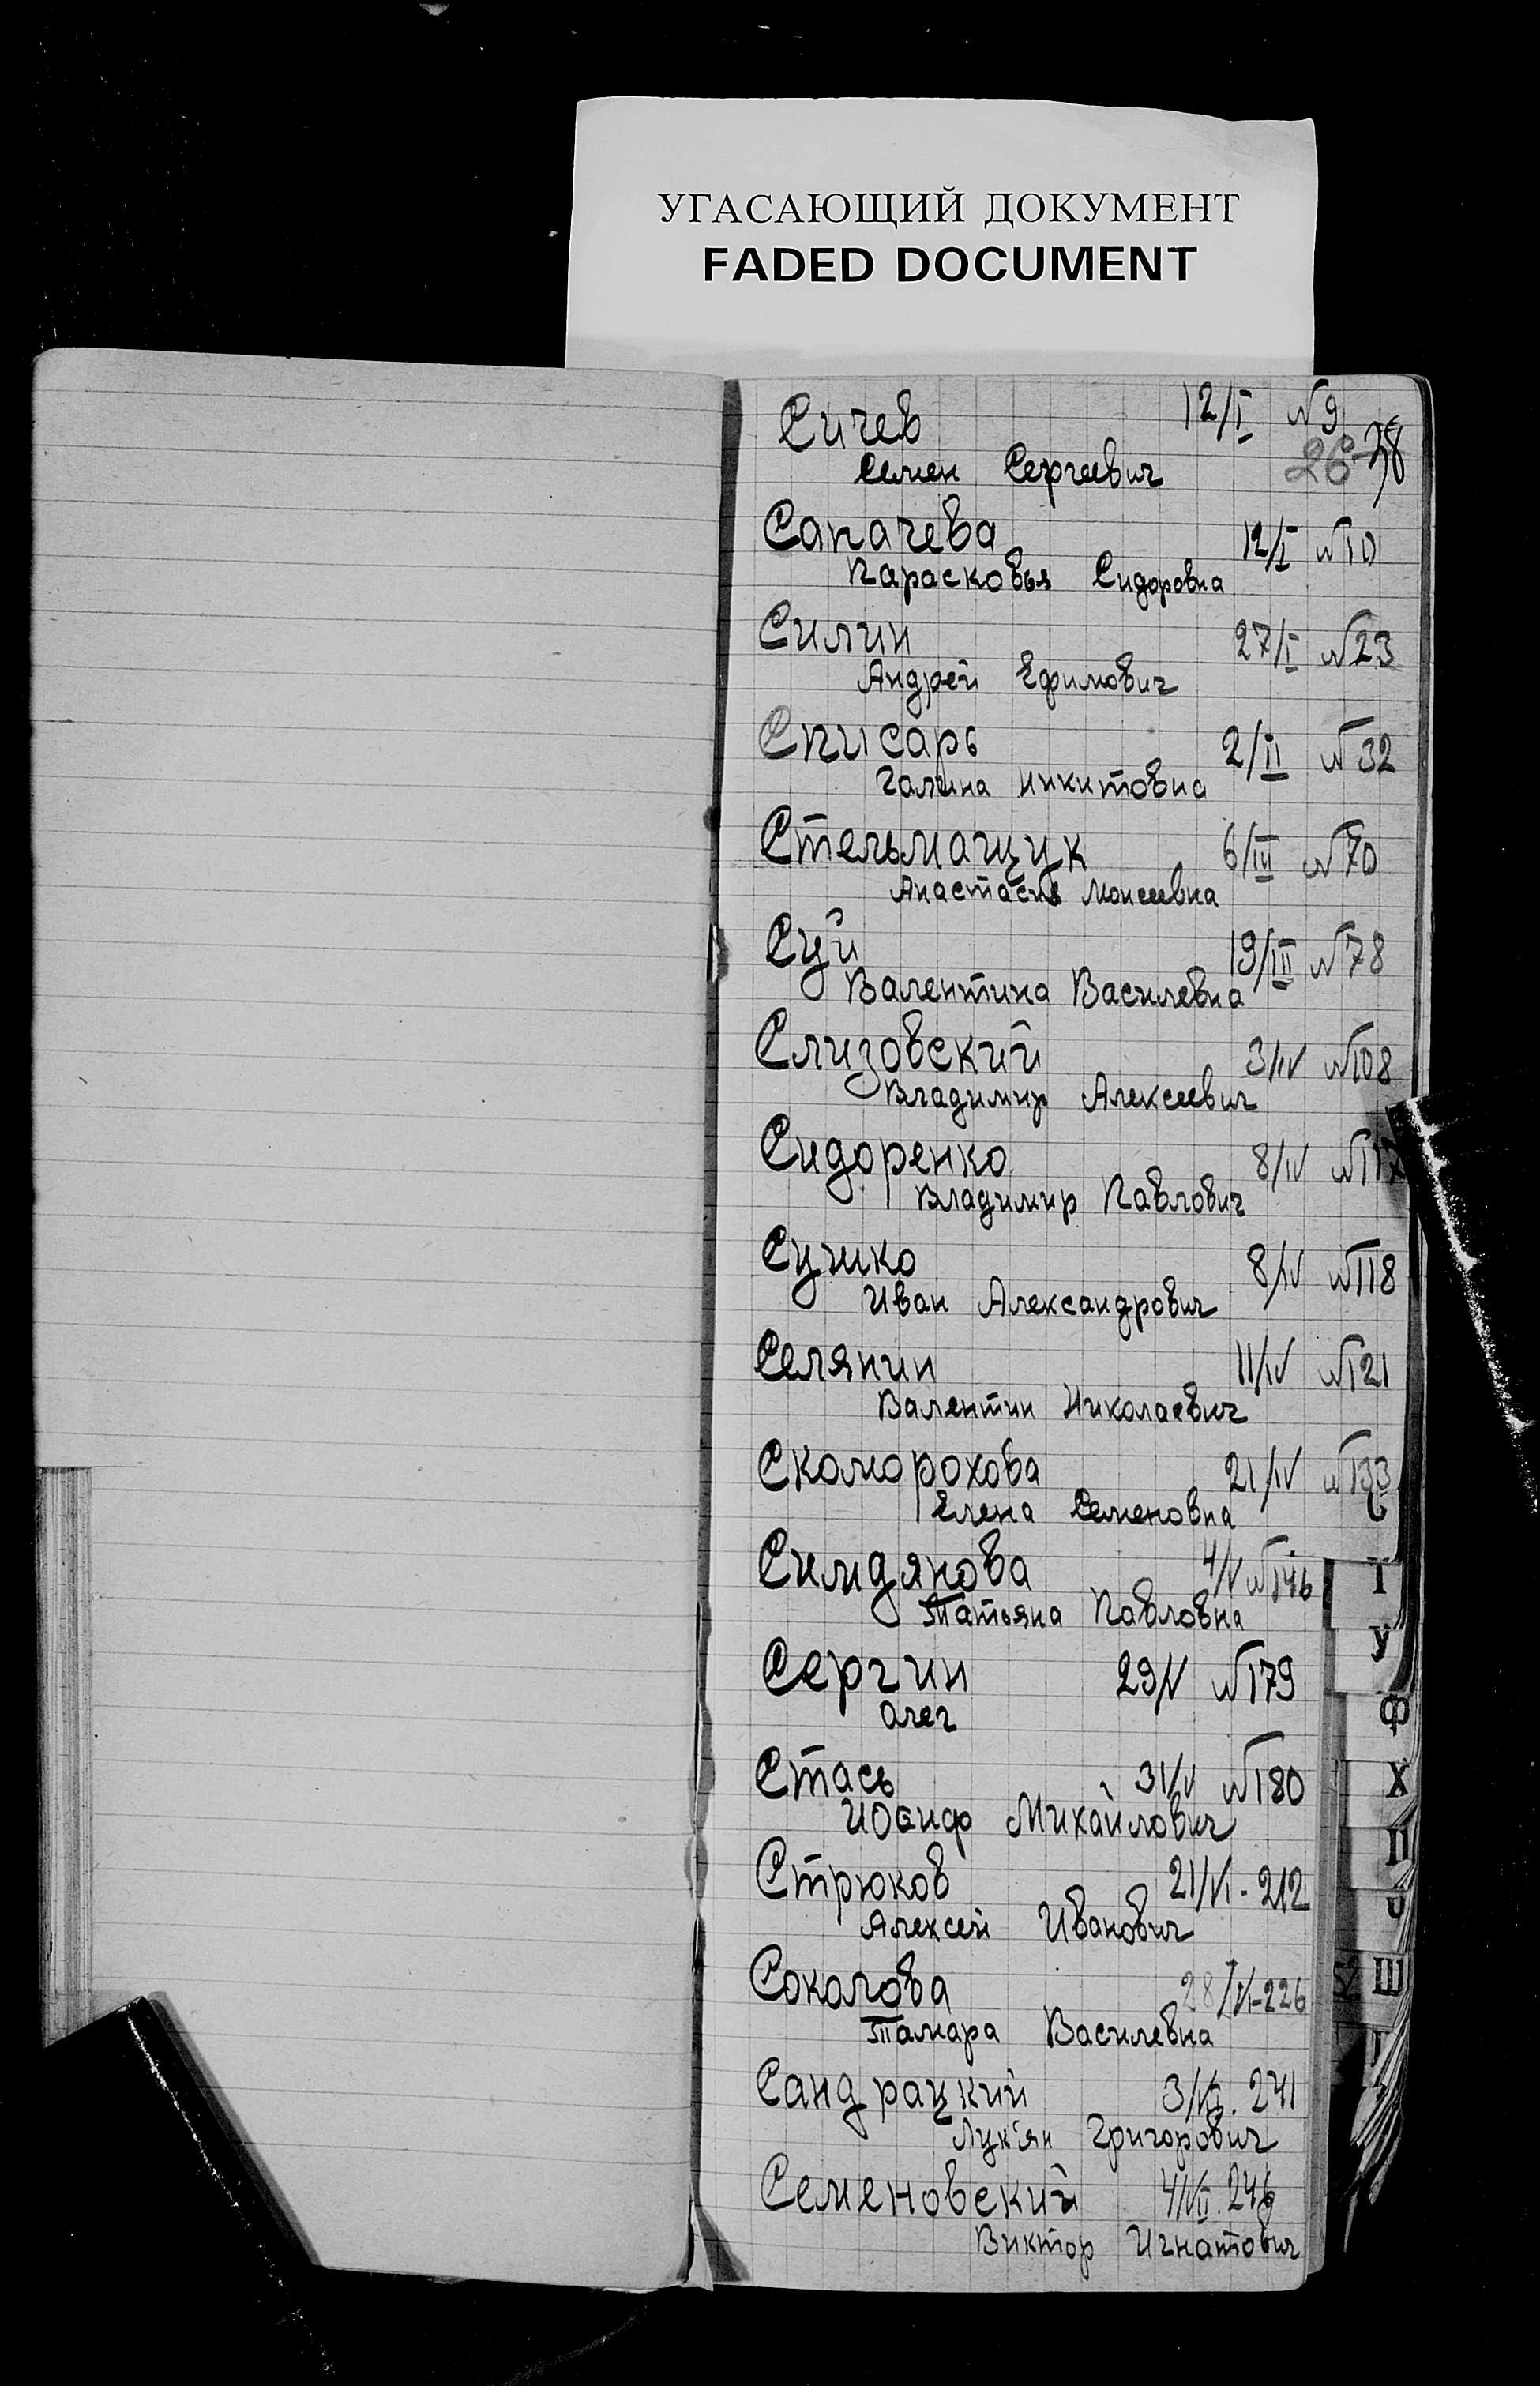 УГАСАЮЩИЙ ДОКУМЕНТ
FADED DOCUMENT
Сичев 12/I №9
26 38
Семен Сергеевич
Сапачева 12/I №10
Парасковья Сидоровна
Силин 27/I №23
Андрей Ефимович
Списарь 2/II №32
Галина Никитовна
Стельмащук 6/III №70
Анастасия Моисеевна
Суй 19/III №78
Валентина Василевна
Слизовский 3/IV №108
Владимир Алексеевич
Сидоренко 8/IV №117
Владимир Павлович
Сушко 8/IV №118
Иван Александрович
Селянин 11/IV №121
Валентин Николаевич
Скоморохова 21/IV №133
Елена Семеновна
Симдянова 4/V №146
Татьяна Павловна
Сергин 29/V №179
Олег
Стась 31/V №180
Иосиф Михайлович
Стрюков 21/VI - 212
Алексей Иванович
Соколова 28/VI-226
Тамара Василевна
Сандрацкий 3/VII. 241
Лук'ян Григорович
Семеновский 4/VII. 246
Виктор Игнатович
С
Т
У
Ф
Х
Ц
Ч
Ш